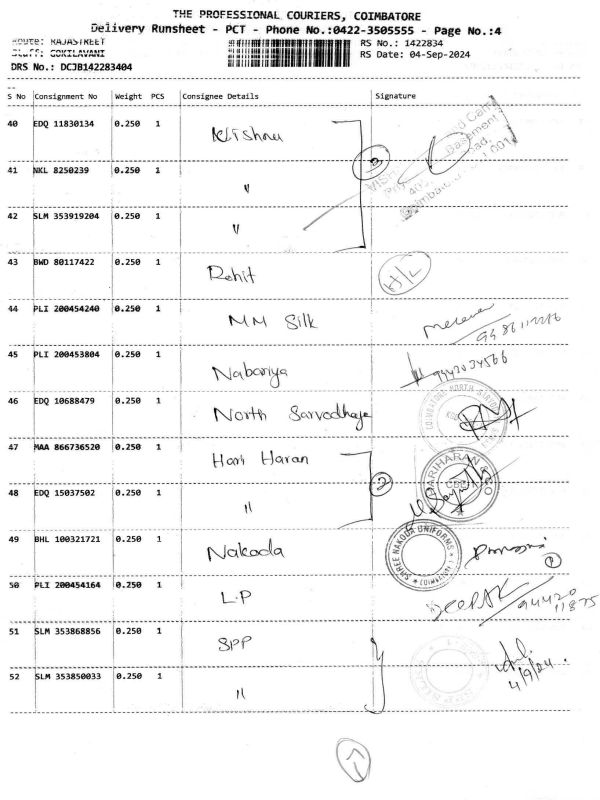 THE PROFESSIONAL COURIERS, COIMBATORE
Delivery Runsheet - PCT - Phone No.:0422-3505555 - Page No.:4
Route: RAJASTREET RS No.: 1422834
Staff: GOKILAVANI RS Date: 04-Sep-2024
DRS No.: DCJB142283404
S No Consignment No Weight PCS Consignee Details Signature
40 EDQ 11830134 0.250 1 Krishna
41 NKL 8250239 0.250 1 " 3
42 SLM 353919204 0.250 1 "
43 BWD 80117422 0.250 1 Rohit H/L
44 PLI 200454240 0.250 1 MM Silk
45 PLI 200453804 0.250 1 Nabariya 9942034566
46 EDQ 10688479 0.250 1 North Sarvodhaya
47 MAA 866736520 0.250 1 Hari Haran HARIHARAN & CO
48 EDQ 15037502 0.250 1 " 2
49 BHL 100321721 0.250 1 Nakoda SHREE NAKODA UNIFORMS
50 PLI 200454164 0.250 1 L.P DEEPAK 94420 11875
51 SLM 353868856 0.250 1 SPP
52 SLM 353850033 0.250 1 " 4/9/24.